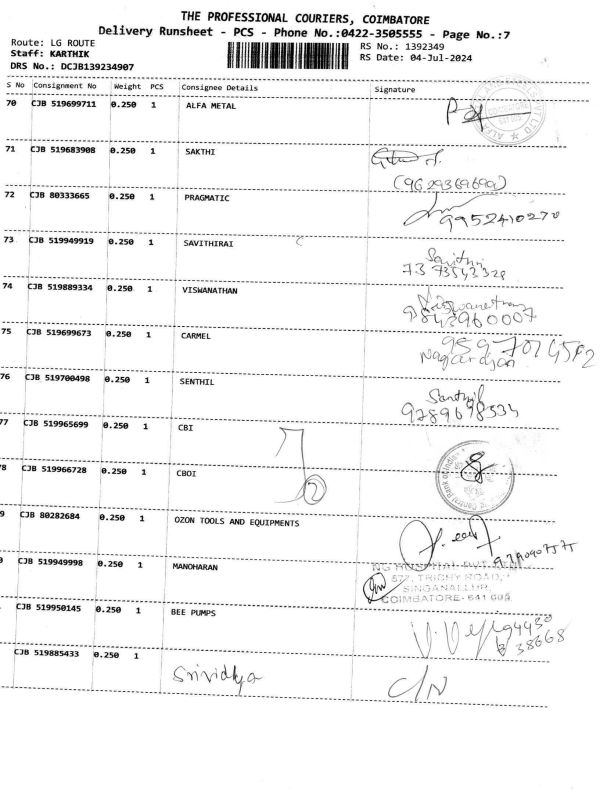 THE PROFESSIONAL COURIERS, COIMBATORE
Delivery Runsheet - PCS - Phone No.:0422-3505555 - Page No.:7
Route: LG ROUTE
Staff: KARTHIK
DRS No.: DCJB139234907
RS No.: 1392349
RS Date: 04-Jul-2024
S No Consignment No Weight PCS Consignee Details Signature
70 CJB 519699711 0.250 1 ALFA METAL
71 CJB 519683908 0.250 1 SAKTHI
72 CJB 80333665 0.250 1 PRAGMATIC
9952410270
73 CJB 519949919 0.250 1 SAVITHIRAI
Savithri
74 CJB 519889334 0.250 1 VISWANATHAN
9842960007
75 CJB 519699673 0.250 1 CARMEL
Nagarajan
76 CJB 519700498 0.250 1 SENTHIL
Senthil
77 CJB 519965699 0.250 1 CBI
78 CJB 519966728 0.250 1 CBOI
2
9 CJB 80282684 0.250 1 OZON TOOLS AND EQUIPMENTS
CJB 519949998 0.250 1 MANOHARAN
577, TRICHY ROAD,
SINGANALLUR,
COIMBATORE-641 005
CJB 519950145 0.250 1 BEE PUMPS
CJB 519885433 0.250 1 Srividya C/N